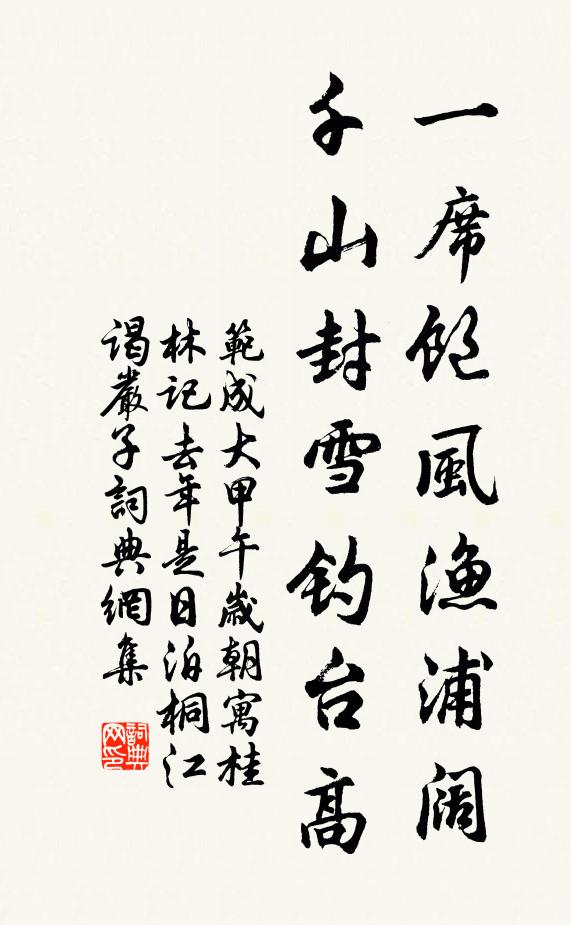 一席饱風漁浦阔
千山封雪钓台高
範成大甲午歲朝寓桂
林记去年是日泊桐江
谒嚴子詞典網集
詞典网印